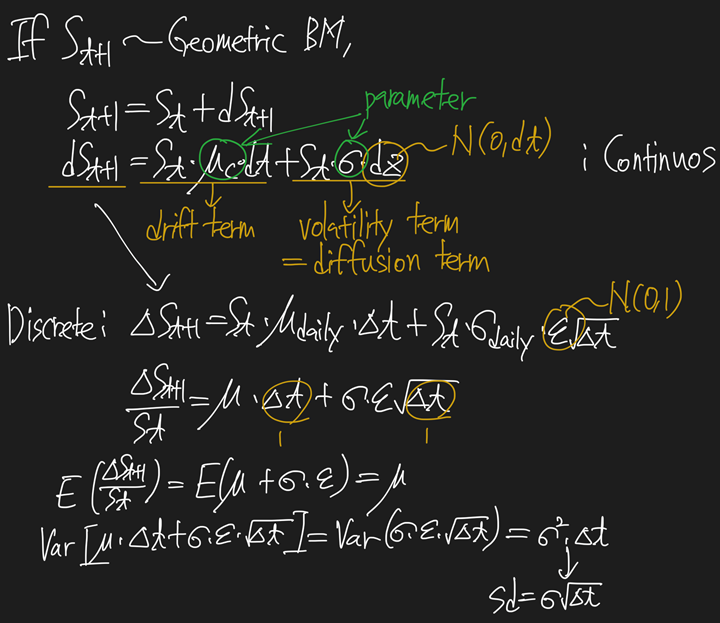 If S_{t+1} ~ Geometric BM,
S_{t+1} = S_t + dS_{t+1}
parameter
dS_{t+1} = S_t · μ_c · dt + S_t · σ · dz
N(0, dt)
: Continuos
drift term
volatility term
= diffusion term
N(0,1)
Discrete: ΔS_{t+1} = S_t · μ_{daily} · Δt + S_t · σ_{daily} · ε√Δt
ΔS_{t+1}/S_t = μ · Δt + σ · ε√Δt
1 1
E(ΔS_{t+1}/S_t) = E(μ + σ · ε) = μ
Var[μ · Δt + σ · ε · √Δt] = Var(σ · ε · √Δt) = σ² · Δt
sd = σ√Δt